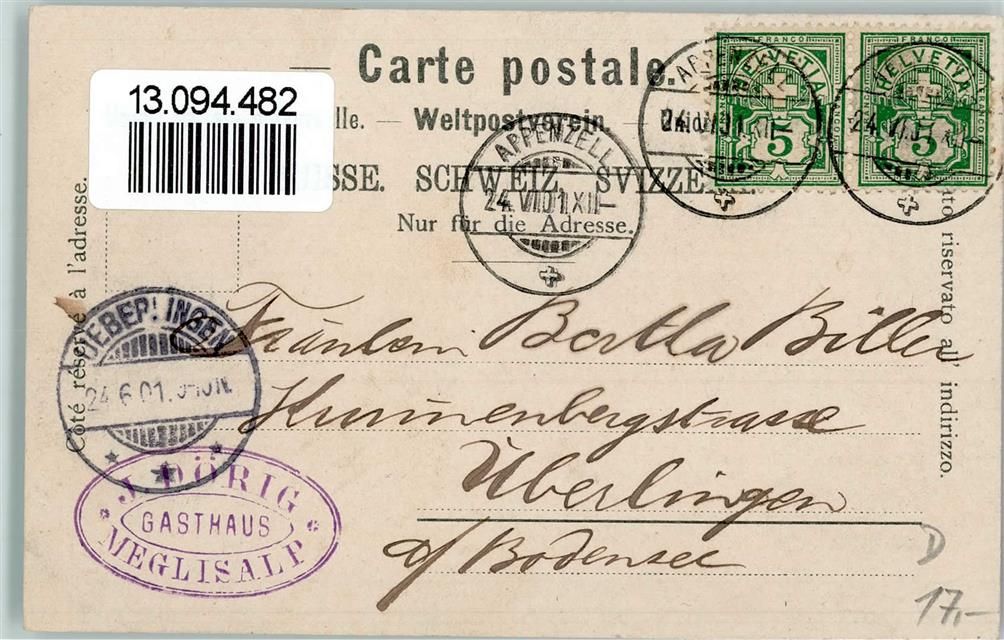 Carte postale.
13.094.482
Weltpostverein.
SCHWEIZ. SVIZZE
Nur für die Adresse.
Côté réservé à l'adresse.
riservato a' indirizzo.
FRANCO
HELVETIA
5
FRANCO
HELVETIA
5
APPENZELL
24.VI.01.XII–
APPENZELL
24.VI.01.XII–
24.VI.01
UEBERLINGEN
24.6.01.
Fräulein Bertha Biller
Krummenbergstrasse
Überlingen
a/Bodensee
J. DÖRIG
GASTHAUS
MEGLISALP
D
17,-